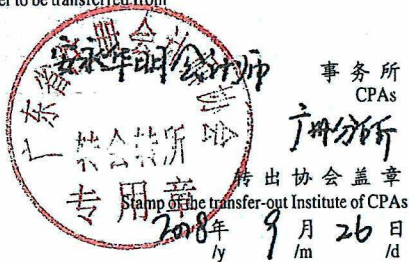 er to be transferred from
安永华明会计师 事务所
CPAs
广州分所
转出协会盖章
Stamp of the transfer-out Institute of CPAs
2018年 9月 26日
/y /m /d
广东省注册会计师协会
转会转所
专用章